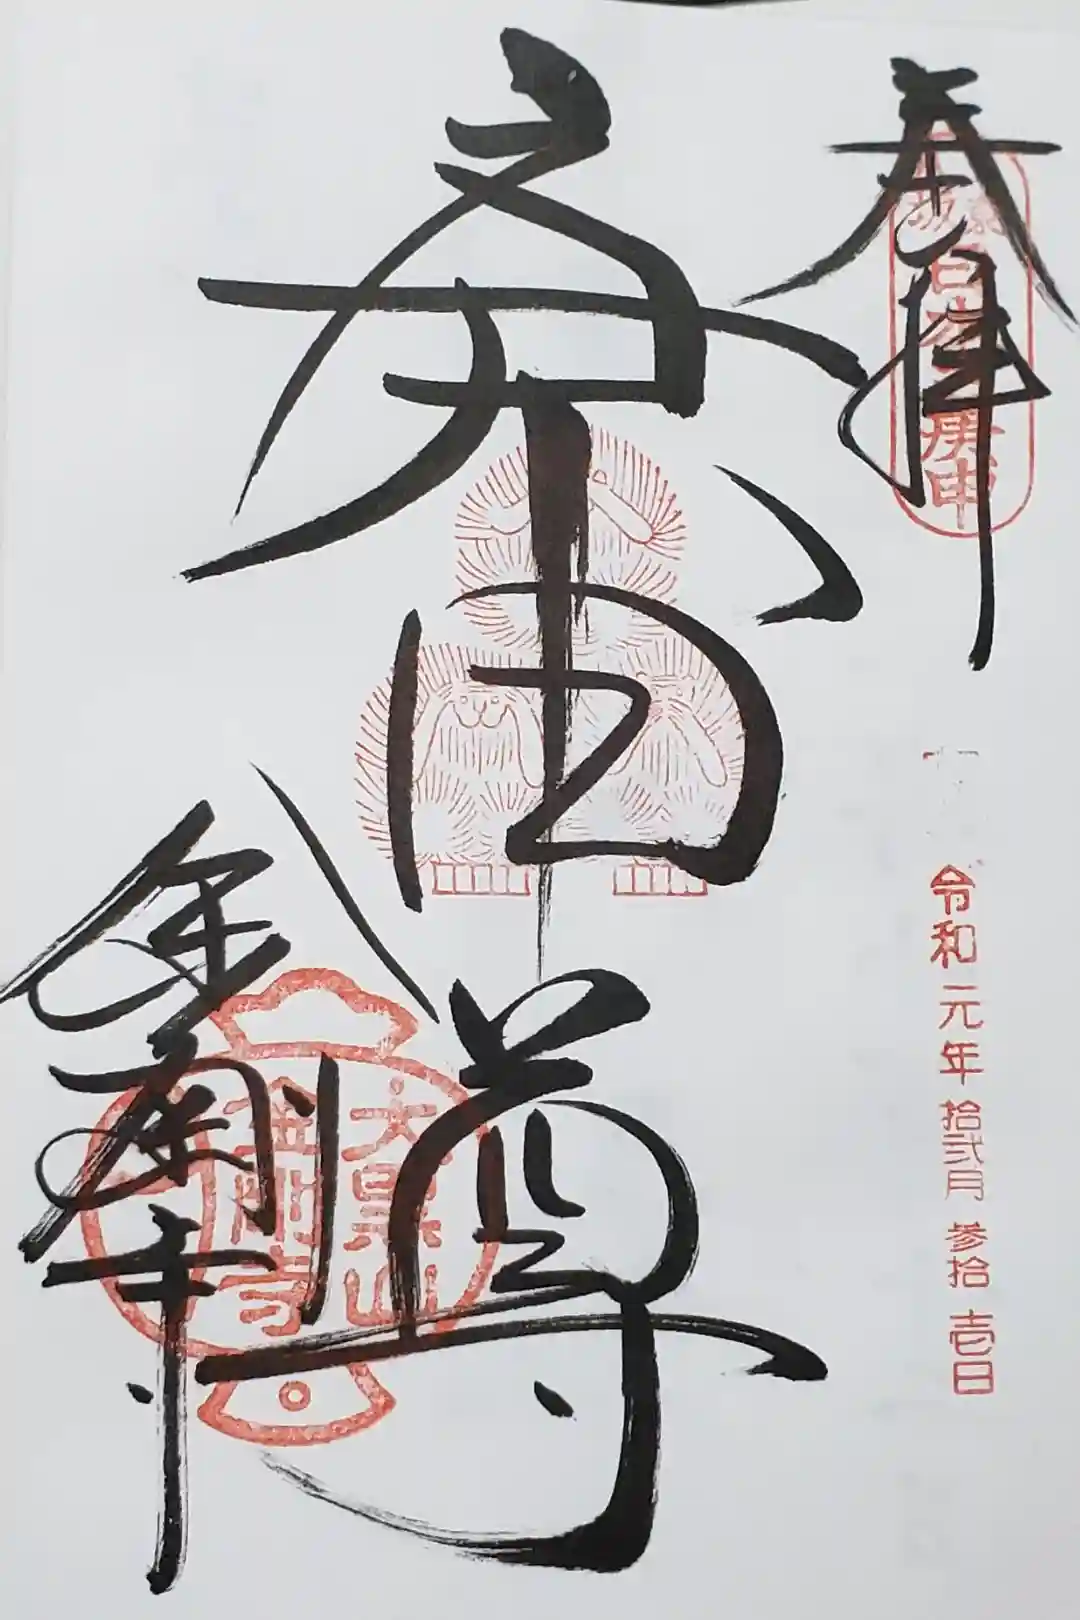 奉拝
庚申
令和元年拾弐月参拾壱日
庚申尊
金剛寺
大黒山
金剛寺